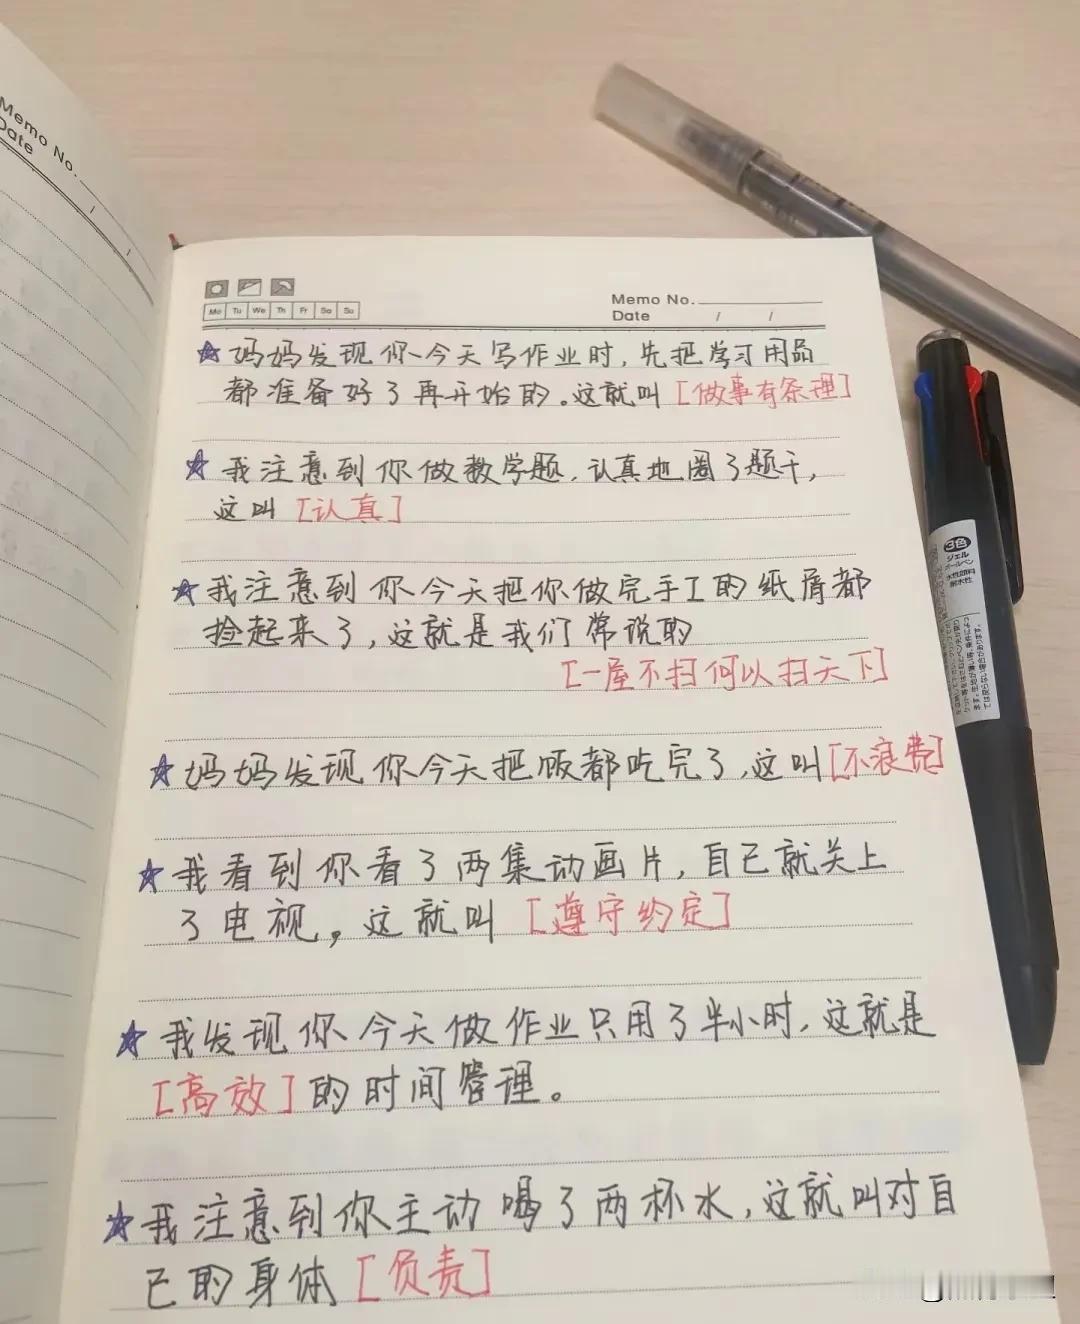 Memo No.
Date / /
Memo No.
Date / /
Mo Tu We Th Fr Sa Su
☆ 妈妈发现你今天写作业时，先把学习用品
都准备好了再开始的。这就叫［做事有条理］
☆ 我注意到你做数学题，认真地圈了题干，
这叫［认真］
☆ 我注意到你今天把你做完手工的纸屑都
捡起来了，这就是我们常说的
［一屋不扫何以扫天下］
☆ 妈妈发现你今天把饭都吃完了，这叫［不浪费］
☆ 我看到你看了两集动画片，自己就关上
了电视，这就叫［遵守约定］
☆ 我发现你今天做作业只用了半小时，这就是
［高效］的时间管理。
☆ 我注意到你主动喝了两杯水，这就叫对自
己的身体［负责］
3色
ジェル
ボールペン
水性顔料
耐水性